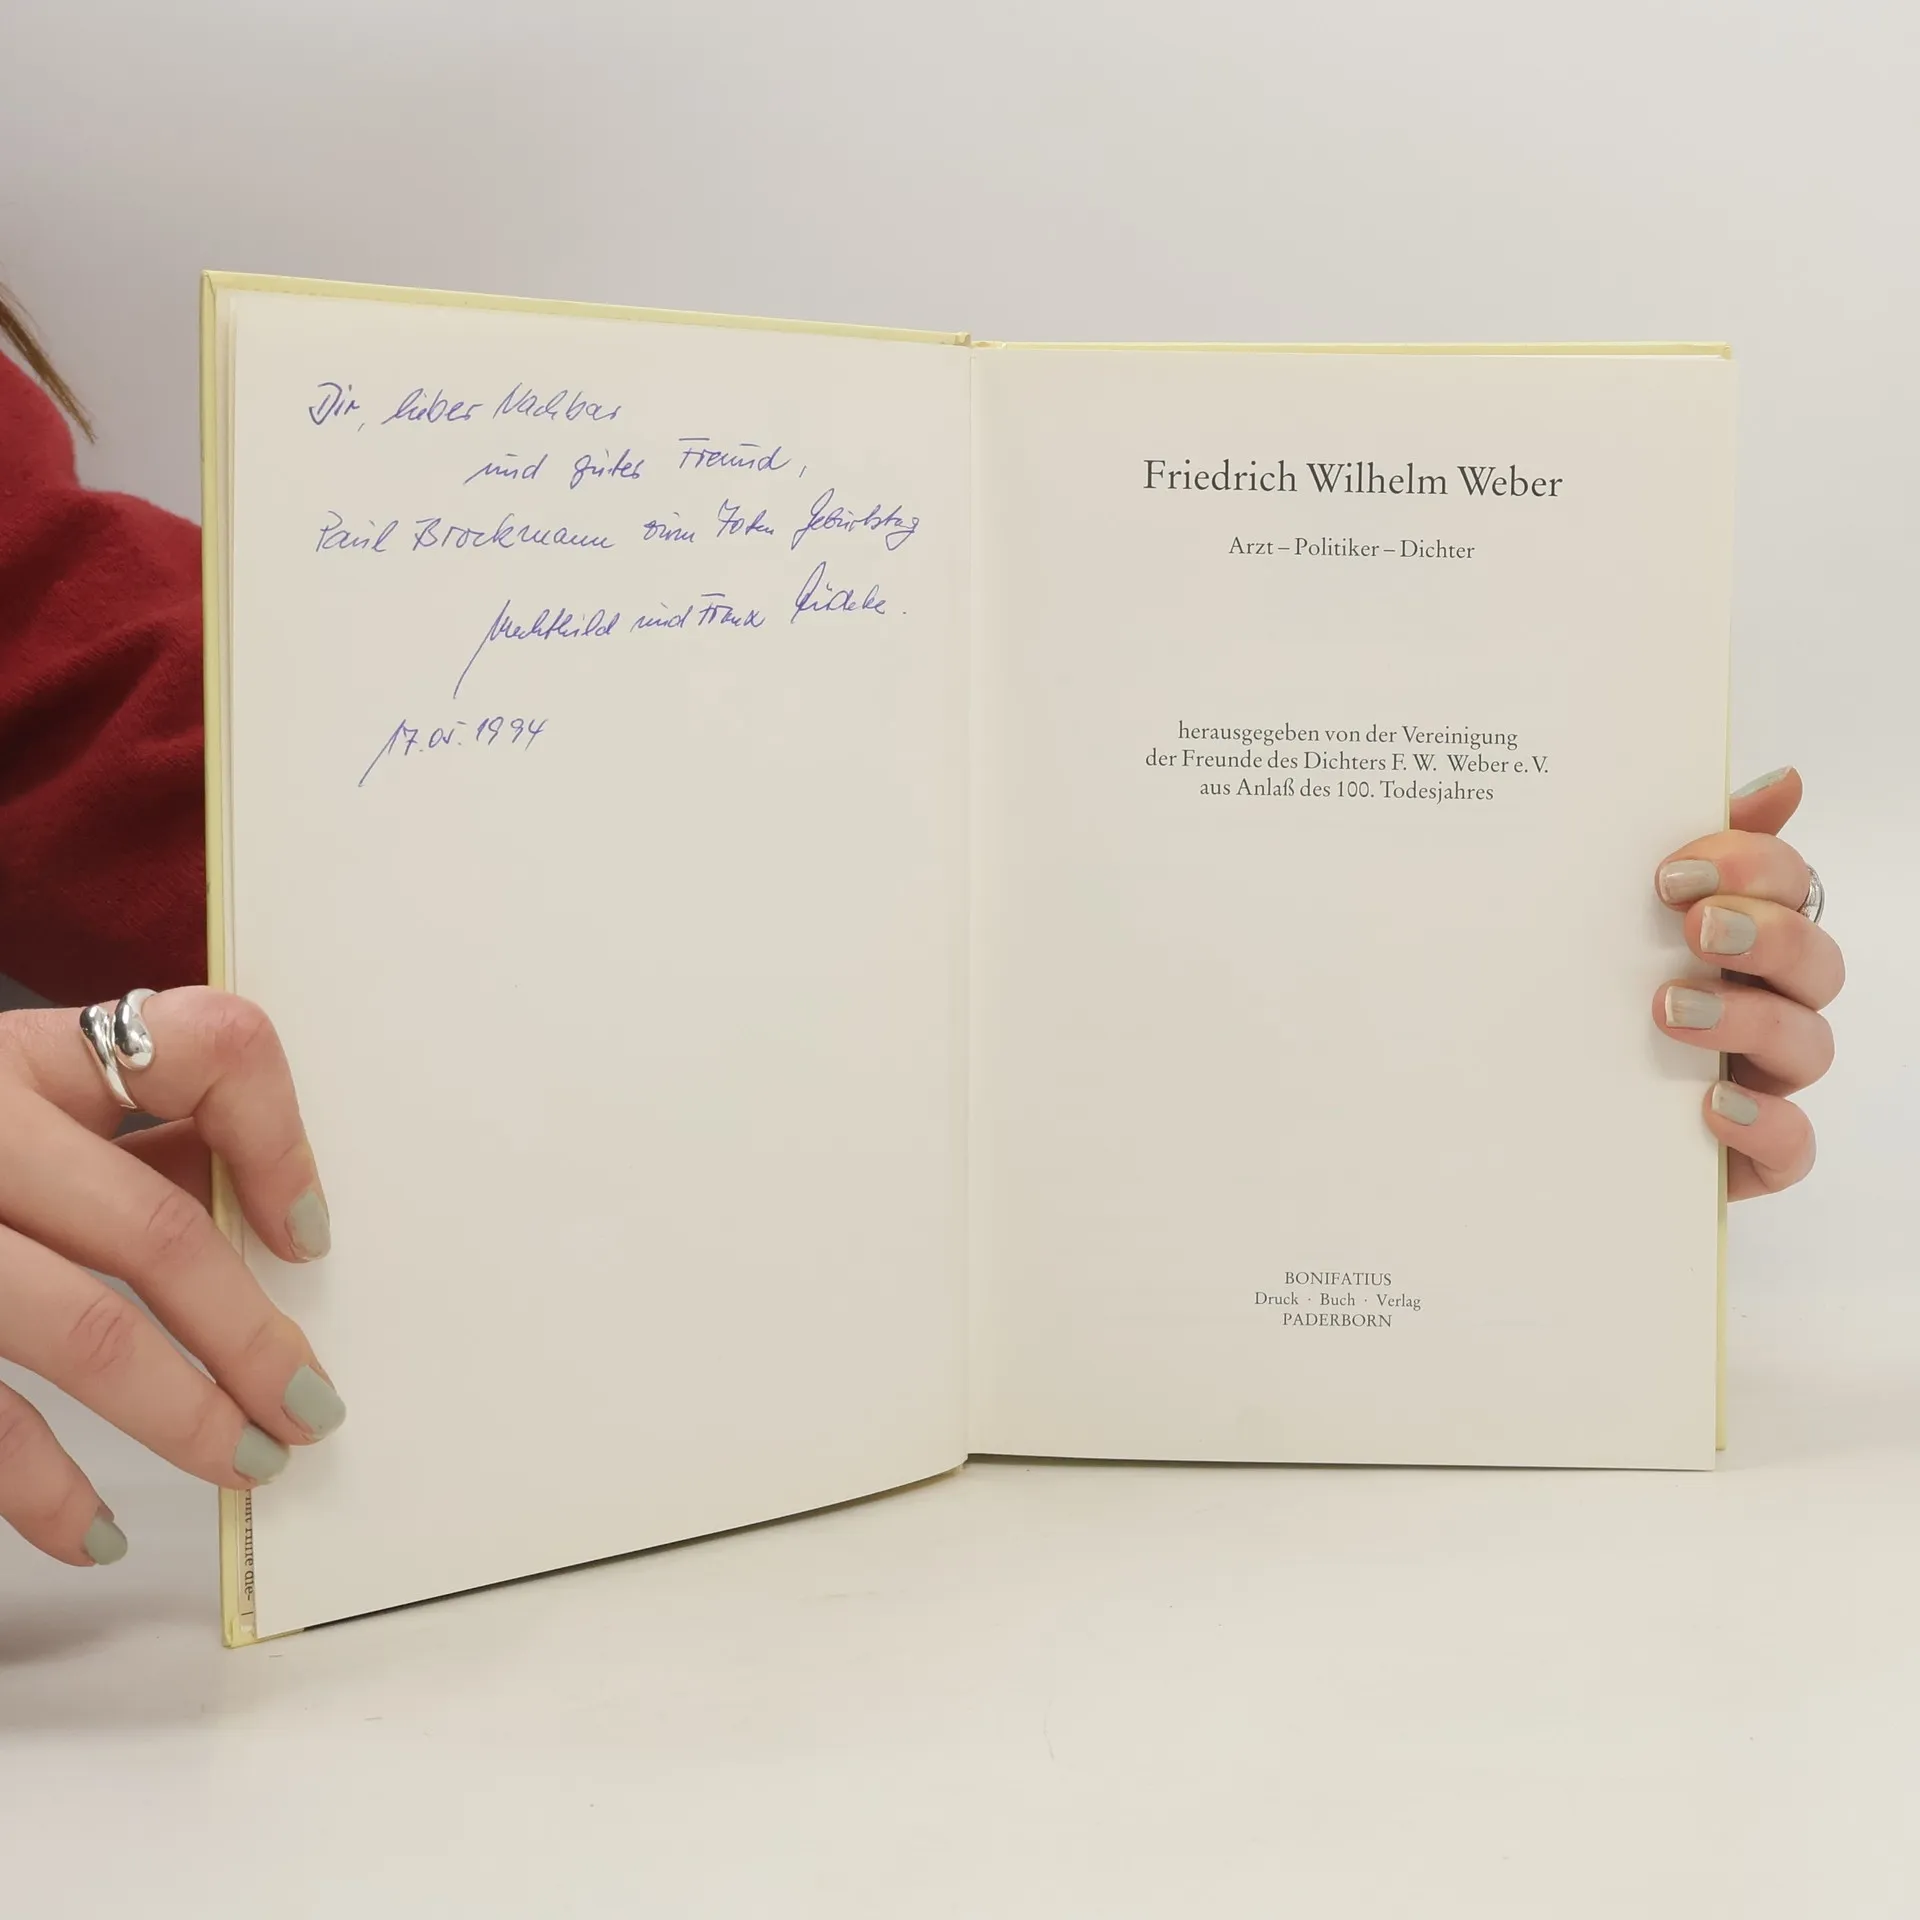 Dir, lieber Nachbar
und guter Freund,
Paul Brockmann zum 70ten Geburtstag
Mechthild und Franz
17.05.1994
Friedrich Wilhelm Weber
Arzt – Politiker – Dichter
herausgegeben von der Vereinigung
der Freunde des Dichters F. W. Weber e. V.
aus Anlaß des 100. Todesjahres
BONIFATIUS
Druck · Buch · Verlag
PADERBORN